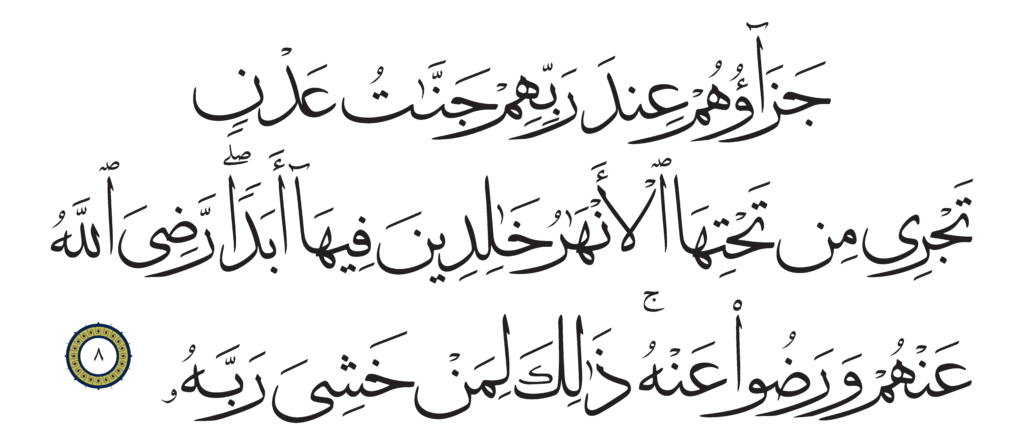 جَزَآؤُهُمْ عِندَ رَبِّهِمْ جَنَّـٰتُ عَدْنٍ
تَجْرِى مِن تَحْتِهَا ٱلْأَنْهَـٰرُ خَـٰلِدِينَ فِيهَآ أَبَدًا ۖ رَّضِىَ ٱللَّهُ
عَنْهُمْ وَرَضُوا۟ عَنْهُ ۚ ذَٰلِكَ لِمَنْ خَشِىَ رَبَّهُۥ ٨